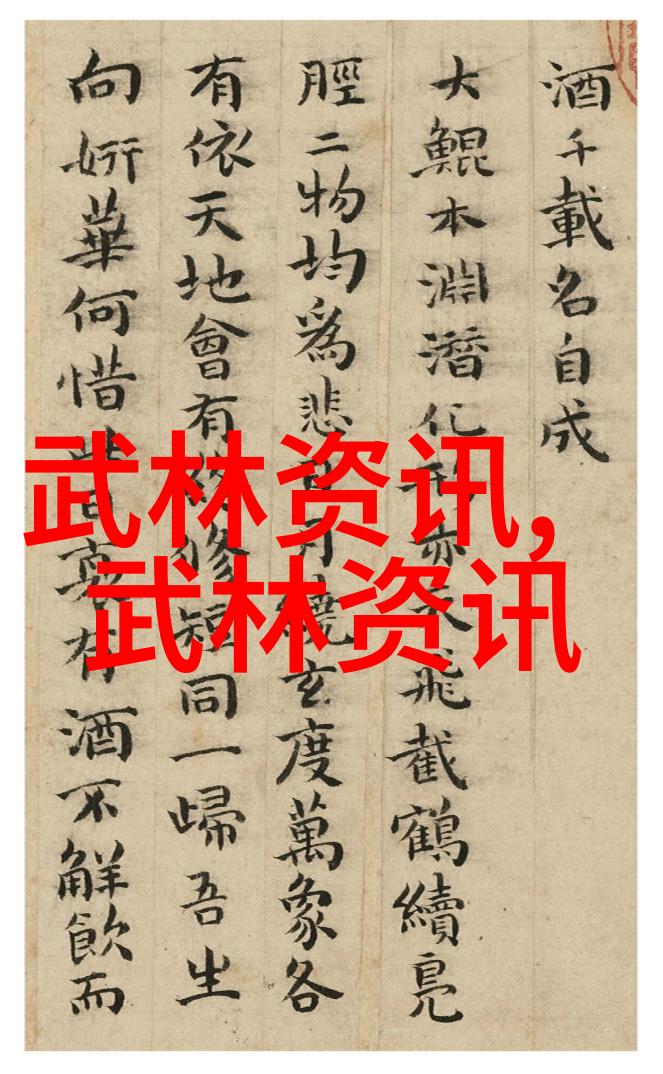 酒千載名自成
大鯤本淵潛化亦飛截鶴續鳧
脛二物均爲悲月繞玄度萬象各
有依天地會有修短同一歸吾生
向妍華何惜有酒不解飲而
武林资讯,
武林资讯